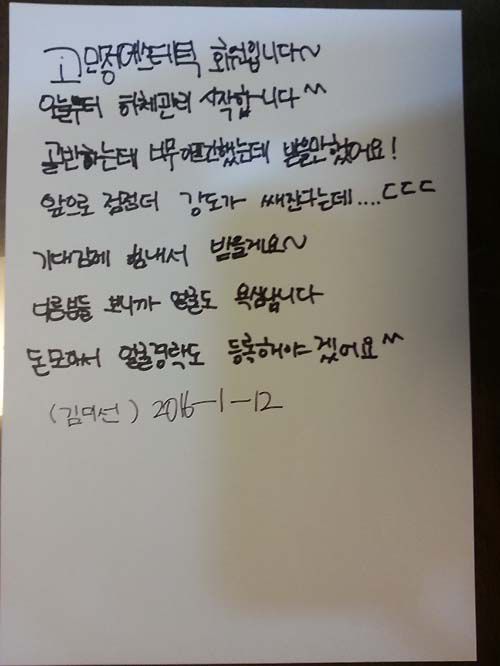 고민정에스테틱 회원입니다~
오늘부터 하체관리 시작합니다^^
골반하는데 너무 했는데 받을만 했어요!
앞으로 점점더 강도가 쌔진다는데....ㄷㄷㄷ
기대감에 힘내서 받을게요~
다릉분들 보니까 얼굴도 욕심납니다
돈모아서 얼굴경락도 등록해야겠어요^^
(김미선) 2016-1-12